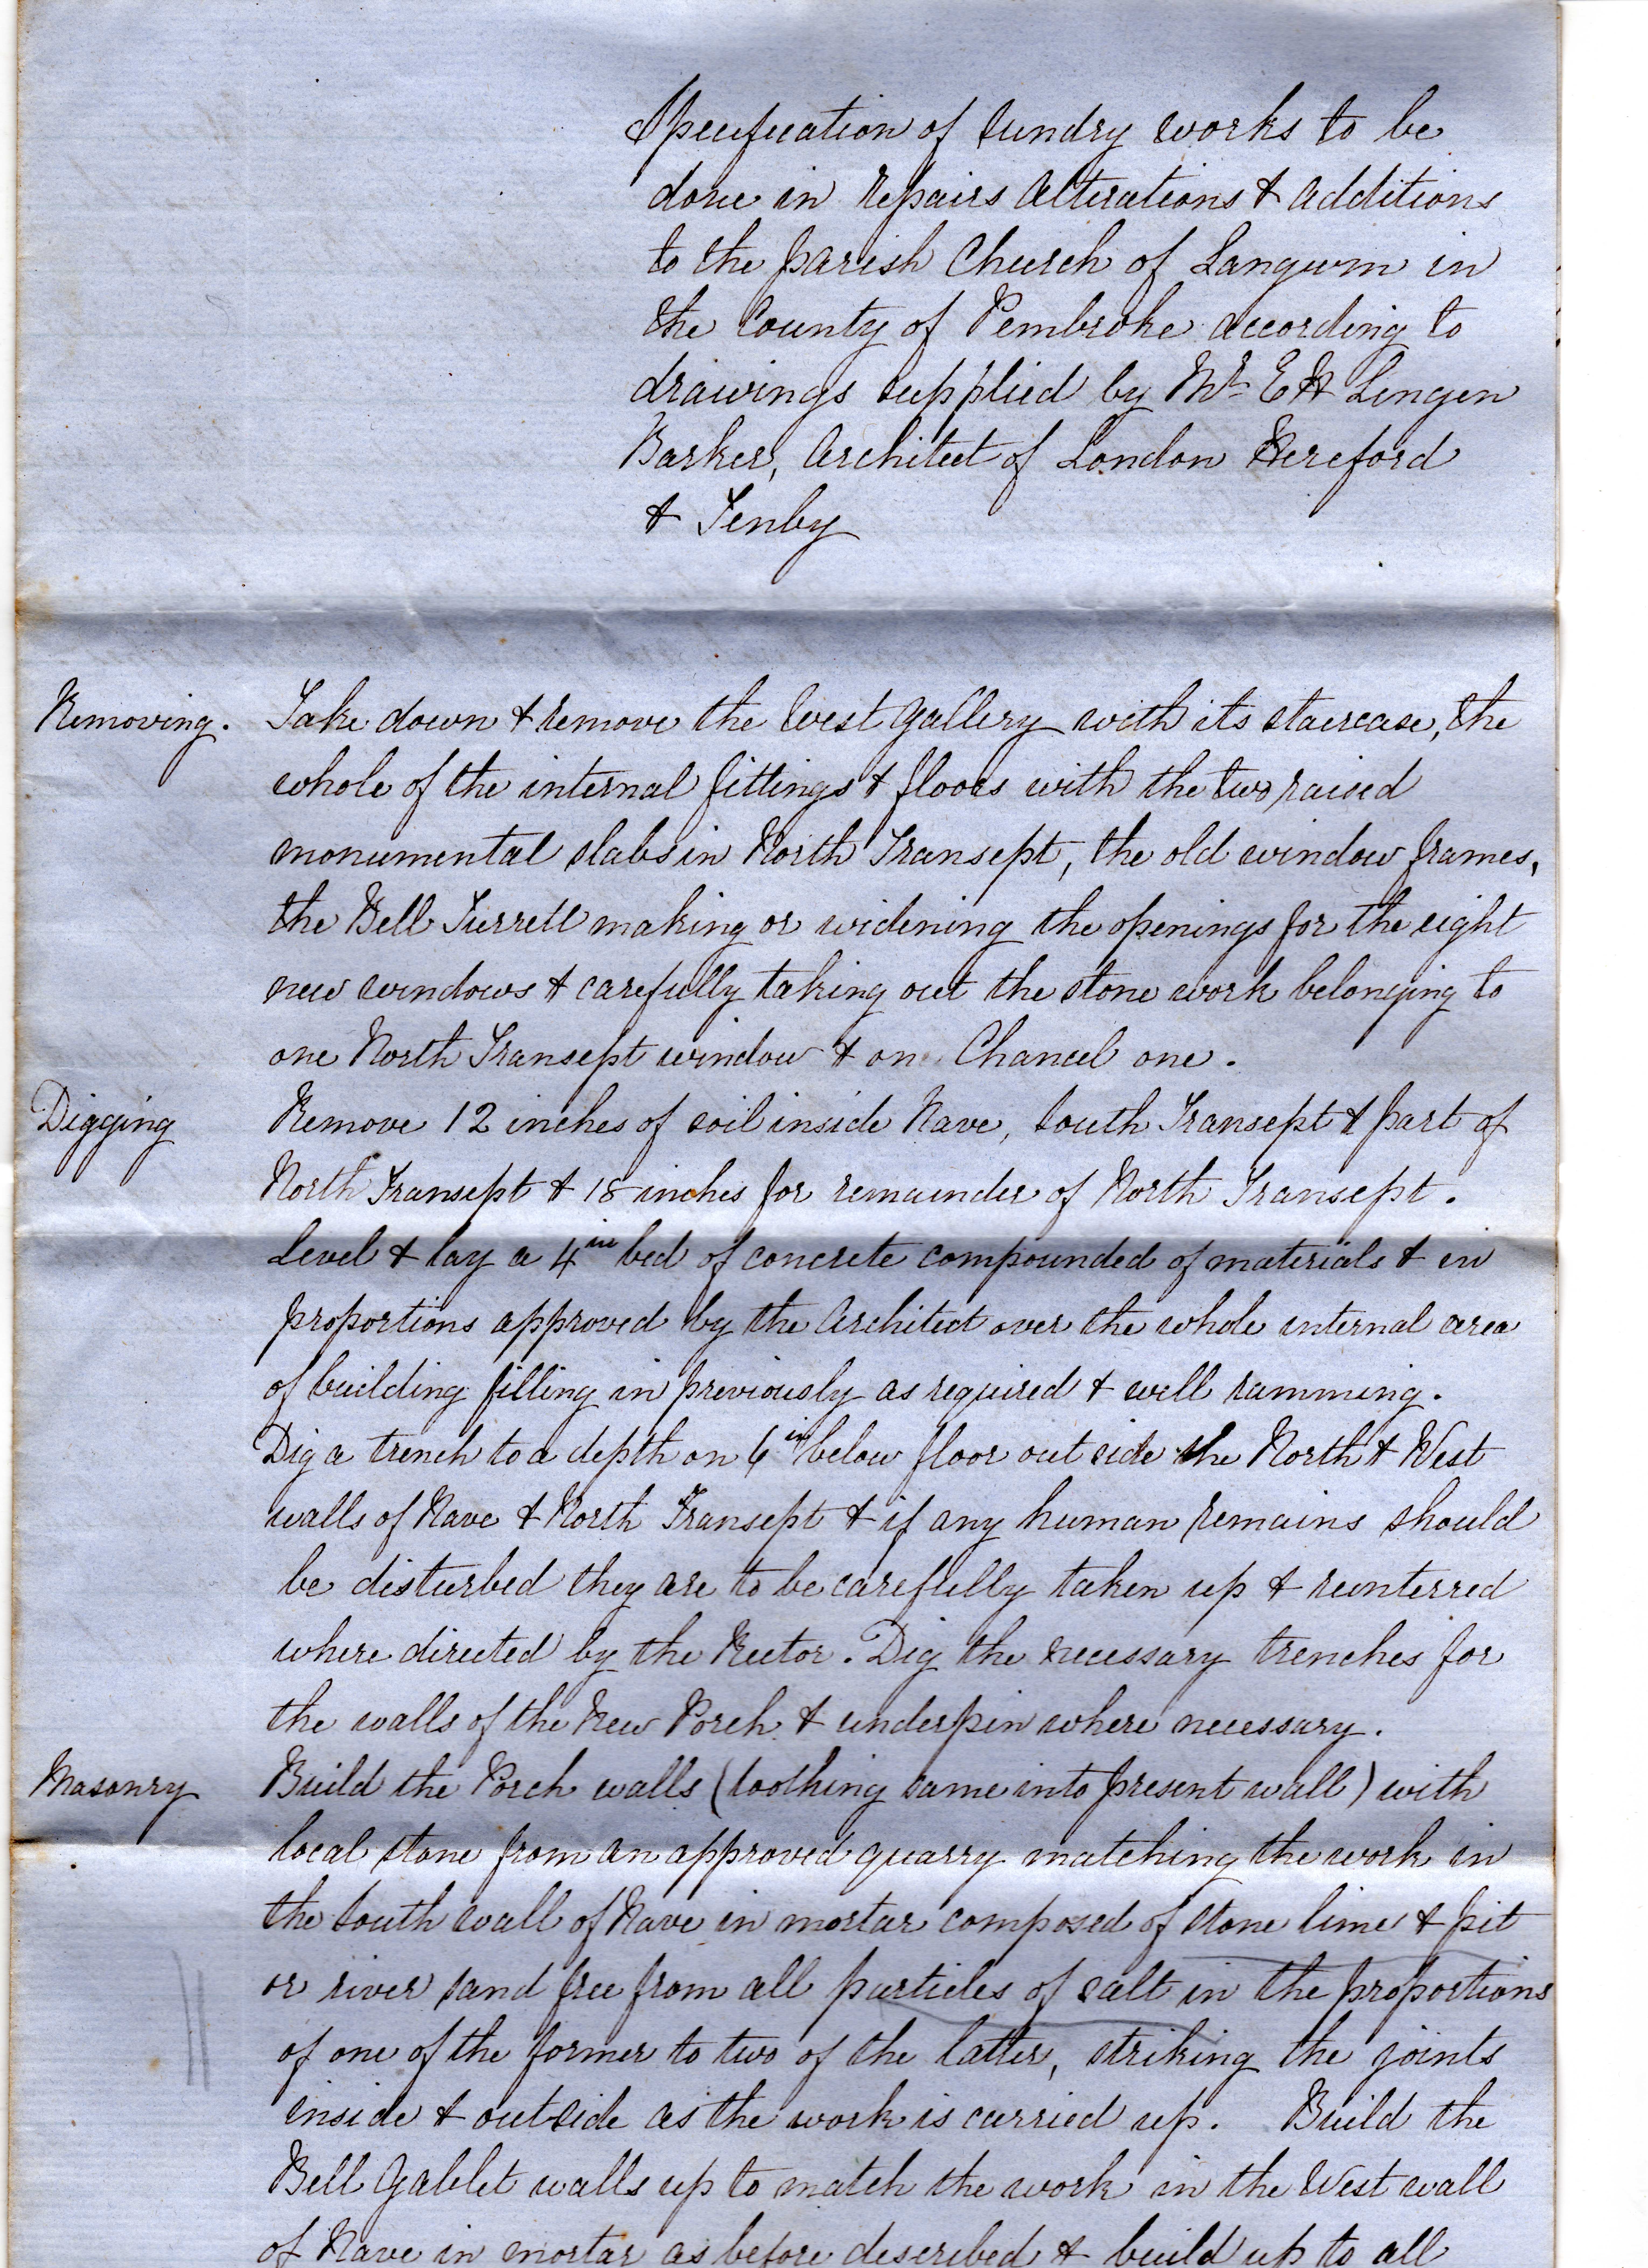 Specification of Sundry works to be
done in repairs alterations & additions
to the parish Church of Langwm in
the County of Pembroke according to
drawings supplied by Mr E H Lingen
Barker, Architect of London Hereford
& Tenby
Removing. Take down & remove the West Gallery with its staircase, the
whole of the internal fittings & floors with the two raised
monumental slabs in North Transept, the old window frames,
the Bell Turrett making or widening the openings for the eight
new windows & carefully taking out the stone work belonging to
one North Transept window & on Chancel one.
Digging Remove 12 inches of soil inside Nave, South Transept & part of
North Transept & 18 inches for remainder of North Transept.
Level & lay a 4in bed of concrete compounded of materials & in
proportions approved by the Architect over the whole internal area
of building filling in previously as required & well ramming.
Dig a trench to a depth on 6in below floor out side the North & West
walls of Nave & North Transept & if any human remains should
be disturbed they are to be carefully taken up & reinterred
where directed by the Rector. Dig the necessary trenches for
the walls of the New Porch & underpin where necessary.
Masonry Build the Porch walls (toothing same into present wall) with
local stone from an approved quarry matching the work in
the South wall of Nave in mortar composed of stone lime & pit
or river sand free from all particles of salt in the proportions
of one of the former to two of the latter, striking the joints
inside & outside as the work is carried up. Build the
Bell Gablet walls up to match the work in the West wall
of Nave in mortar as before described & build up to all